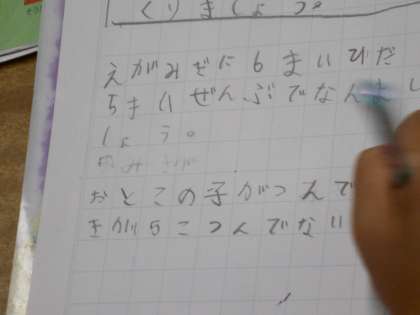 くりましょう。
えがみぎに6まいひだ
5まいぜんぶでなんまい
しょう。
おとこの子がつんで
きが5こつんでない